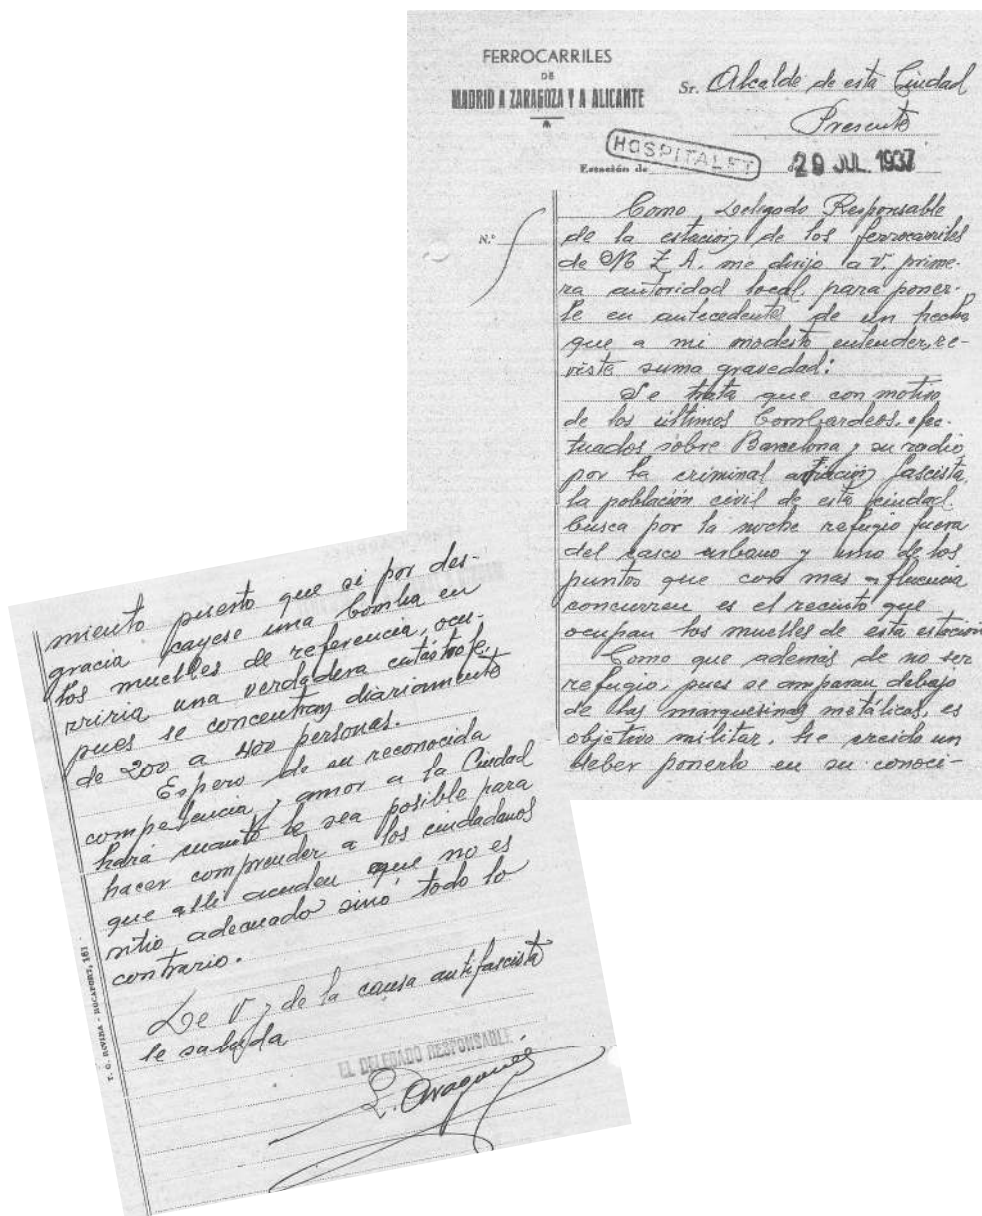 FERROCARRILES
DE
MADRID A ZARAGOZA Y A ALICANTE
Sr. Alcalde de esta Ciudad
Presente
HOSPITALET
Estación de
29 JUL. 1937
N.º
Como Delegado Responsable
de la estación de los ferrocarriles
de M Z A. me dirijo a V. prime-
ra autoridad local, para poner-
le en antecedentes de un hecho
que a mi modesto entender, re-
viste suma gravedad:
Se trata que con motivo
de los últimos bombardeos, efec-
tuados sobre Barcelona y su radio,
por la criminal aviación fascista,
la población civil de esta ciudad
busca por la noche refugio fuera
del casco urbano y uno de los
puntos que con mas afluencia
concurren es el recinto que
ocupan los muelles de esta estación
Como que además de no ser
refugio, pues se amparan debajo
de las marquesinas metálicas, es
objetivo militar, he creido un
deber ponerlo en su conoci-
miento puesto que si por des-
gracia cayese una bomba en
los muelles de referencia, ocu-
rriria una verdadera catástrofe,
pues se concentran diariamente
de 200 a 400 personas.
Espero de su reconocida
competencia y amor a la Ciudad
hará cuanto le sea posible para
hacer comprender a los ciudadanos
que alli acuden que no es
sitio adecuado sinó todo lo
contrario.
De V y de la causa antifascista
le saluda
EL DELEGADO RESPONSABLE.
L. Aragonés
T. G. ROVIRA - ROCAFORT, 161